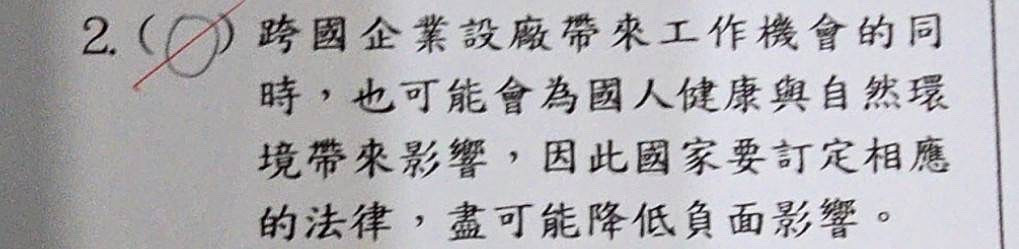 2.(○)跨國企業設廠帶來工作機會的同
時，也可能會為國人健康與自然環
境帶來影響，因此國家要訂定相應
的法律，盡可能降低負面影響。